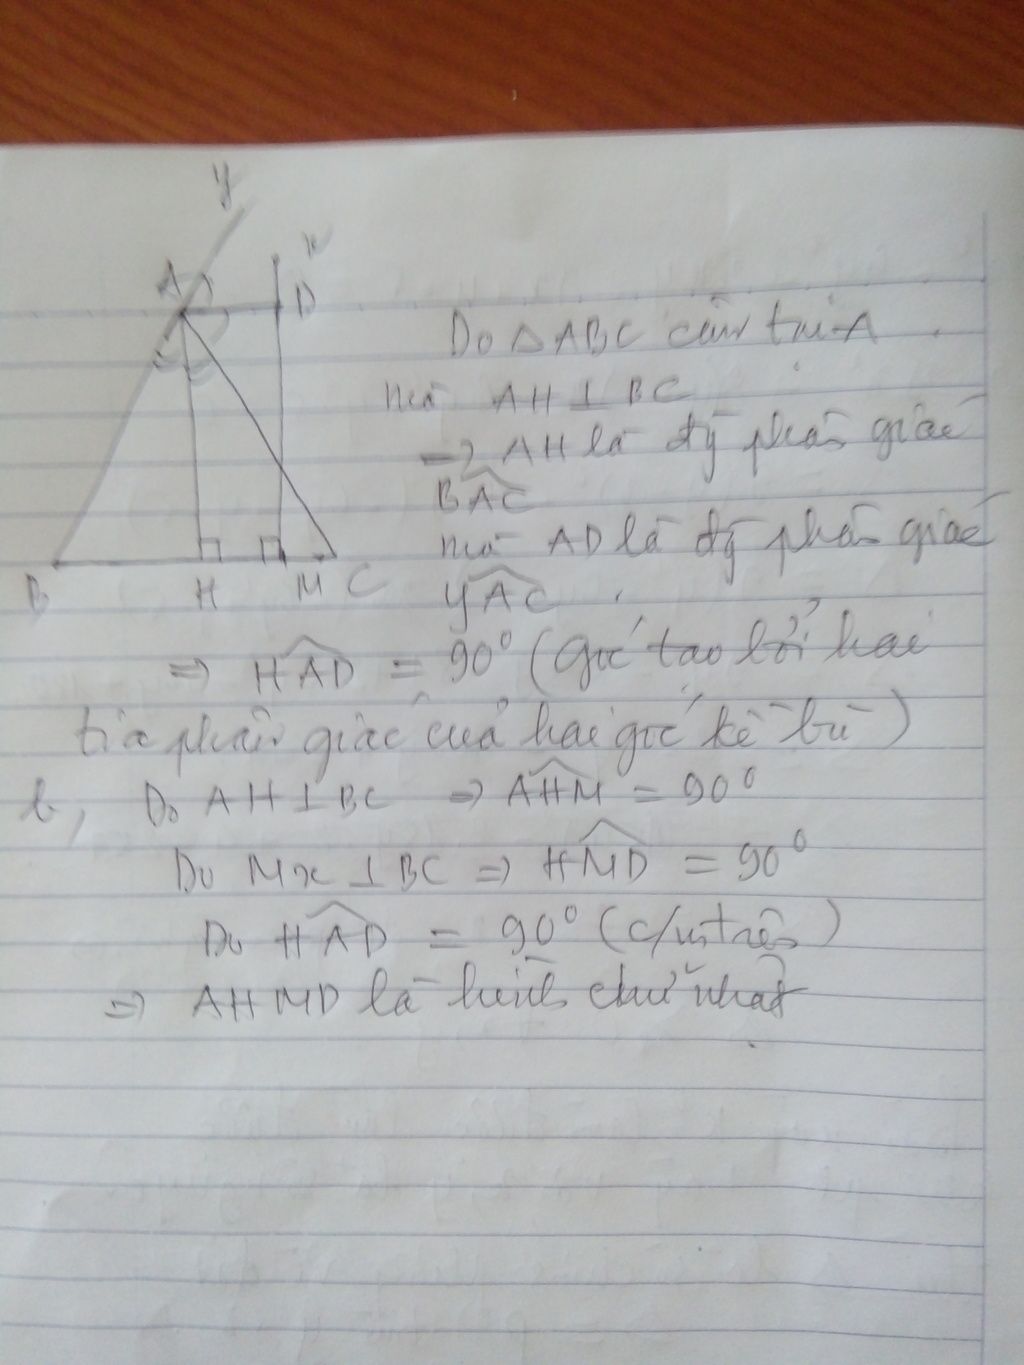 y
x
A
D
B
H
M
C
Do △ABC cân tại A
mà AH ⊥ BC
=> AH là đg phân giác
BAC
mà AD là đg phân giác
yAC
=> HAD = 90° (góc tạo bởi hai
tia phân giác của hai góc kề bù)
b, Do AH ⊥ BC => AHM = 90°
Do Mx ⊥ BC => HMD = 90°
Do HAD = 90° (c/m trên)
=> AHMD là hình chữ nhật